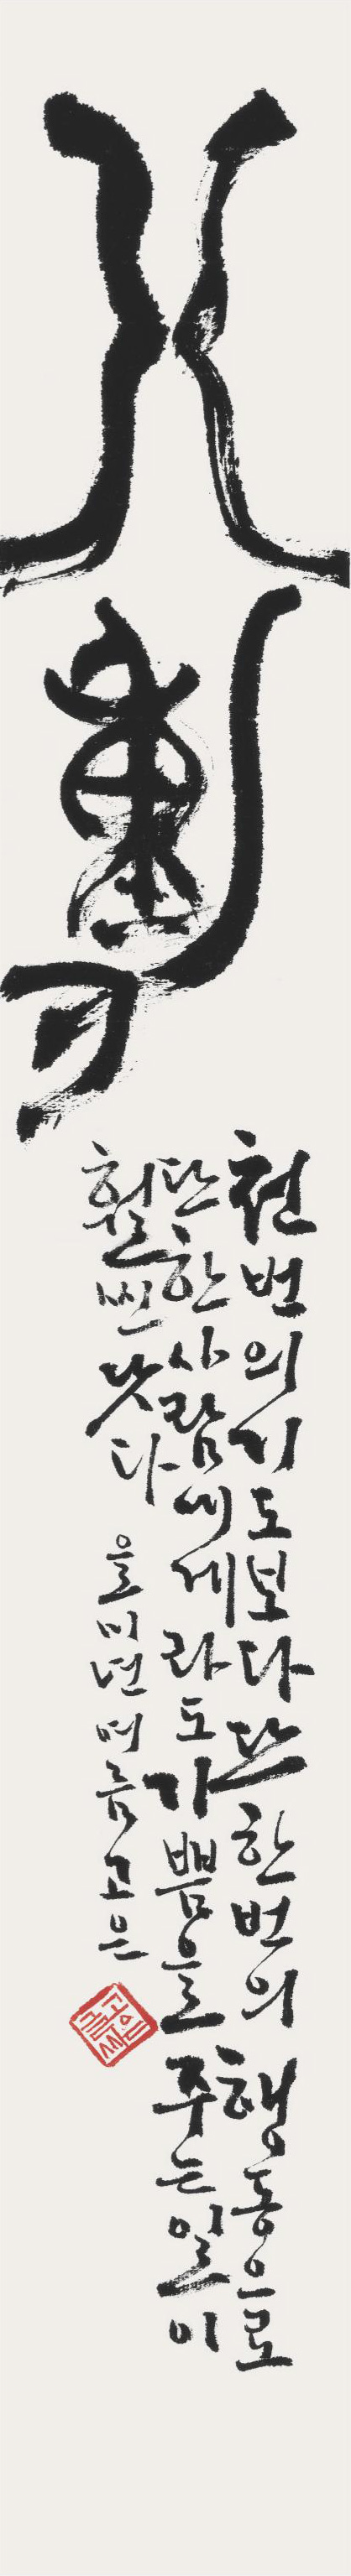 行動
천번의기도보다단한번의행동으로
단한사람에게라도기쁨을주는일이
훨씬낫다 을미년여름고은
고은글씨